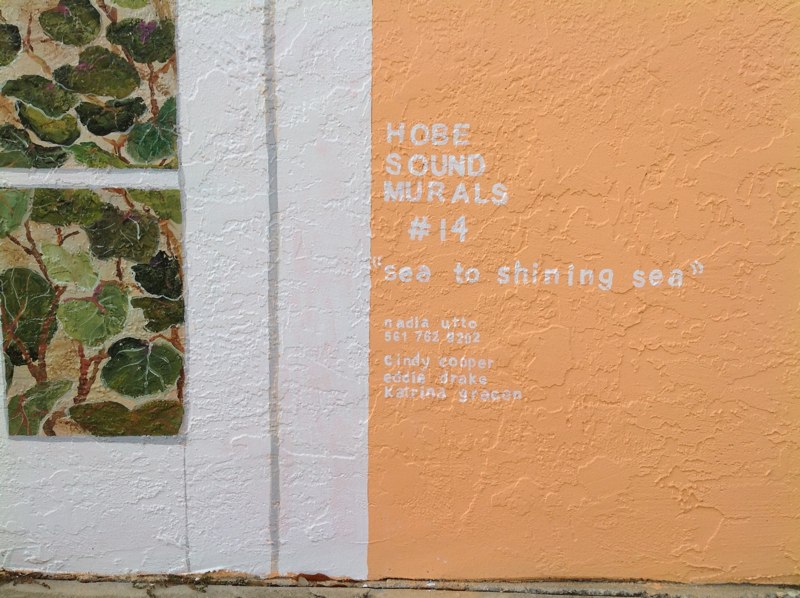 HOBE
SOUND
MURALS
#14
"sea to shining sea"
nadia utto
561 762 9202
Cindy cooper
eddie drake
Katrina gracan